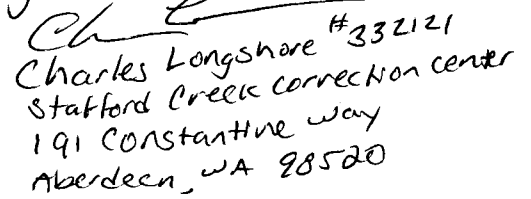 Charles Longshore #332121
Stafford Creek correction center
191 Constantine way
Aberdeen, WA 98520